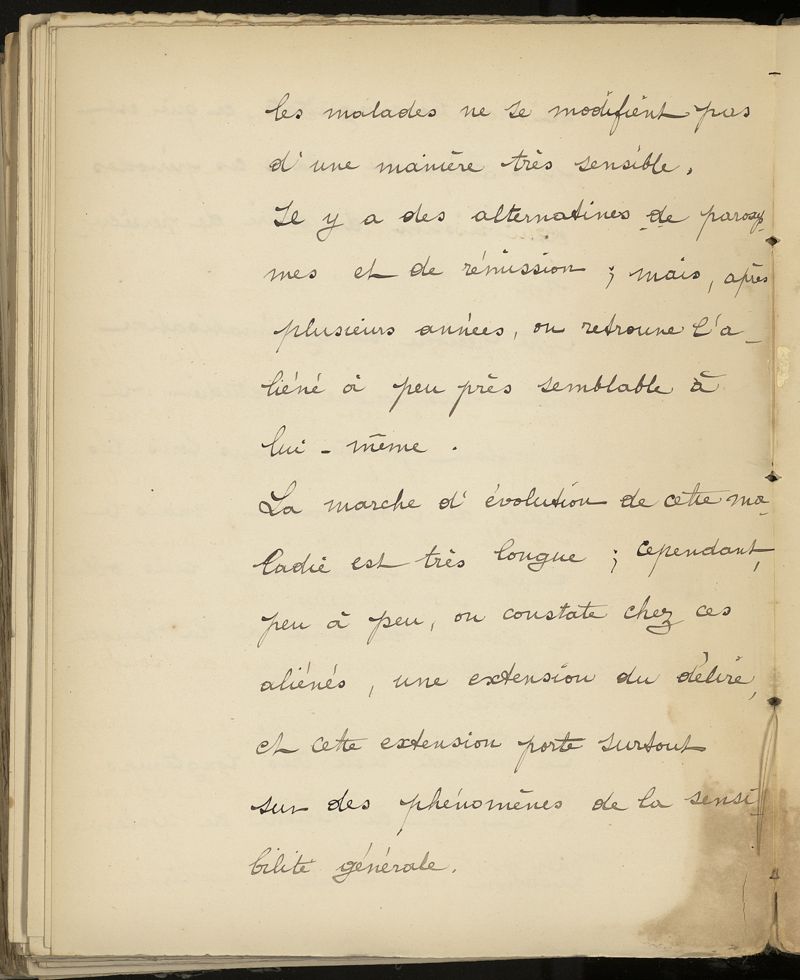 les malades ne se modifient pas
d'une manière très sensible.
Il y a des alternatives de paroxys-
mes et de rémission ; mais, après
plusieurs années, on retrouve l'a-
liéné à peu près semblable à
lui-même.
La marche d'évolution de cette ma-
ladie est très longue ; cependant,
peu à peu, on constate chez ces
aliénés, une extension du délire,
et cette extension porte surtout
sur des phénomènes de la sensi-
bilité générale.